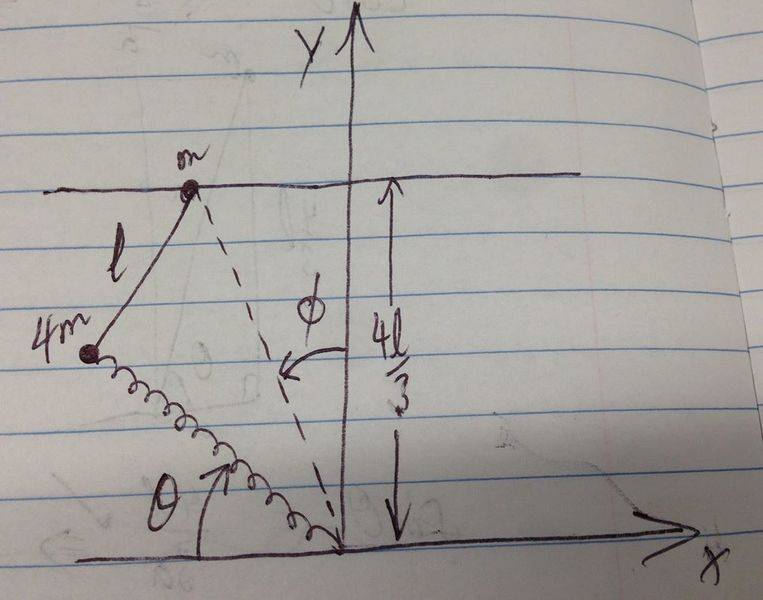 y
m
l
4m
ϕ
4l
3
θ
x